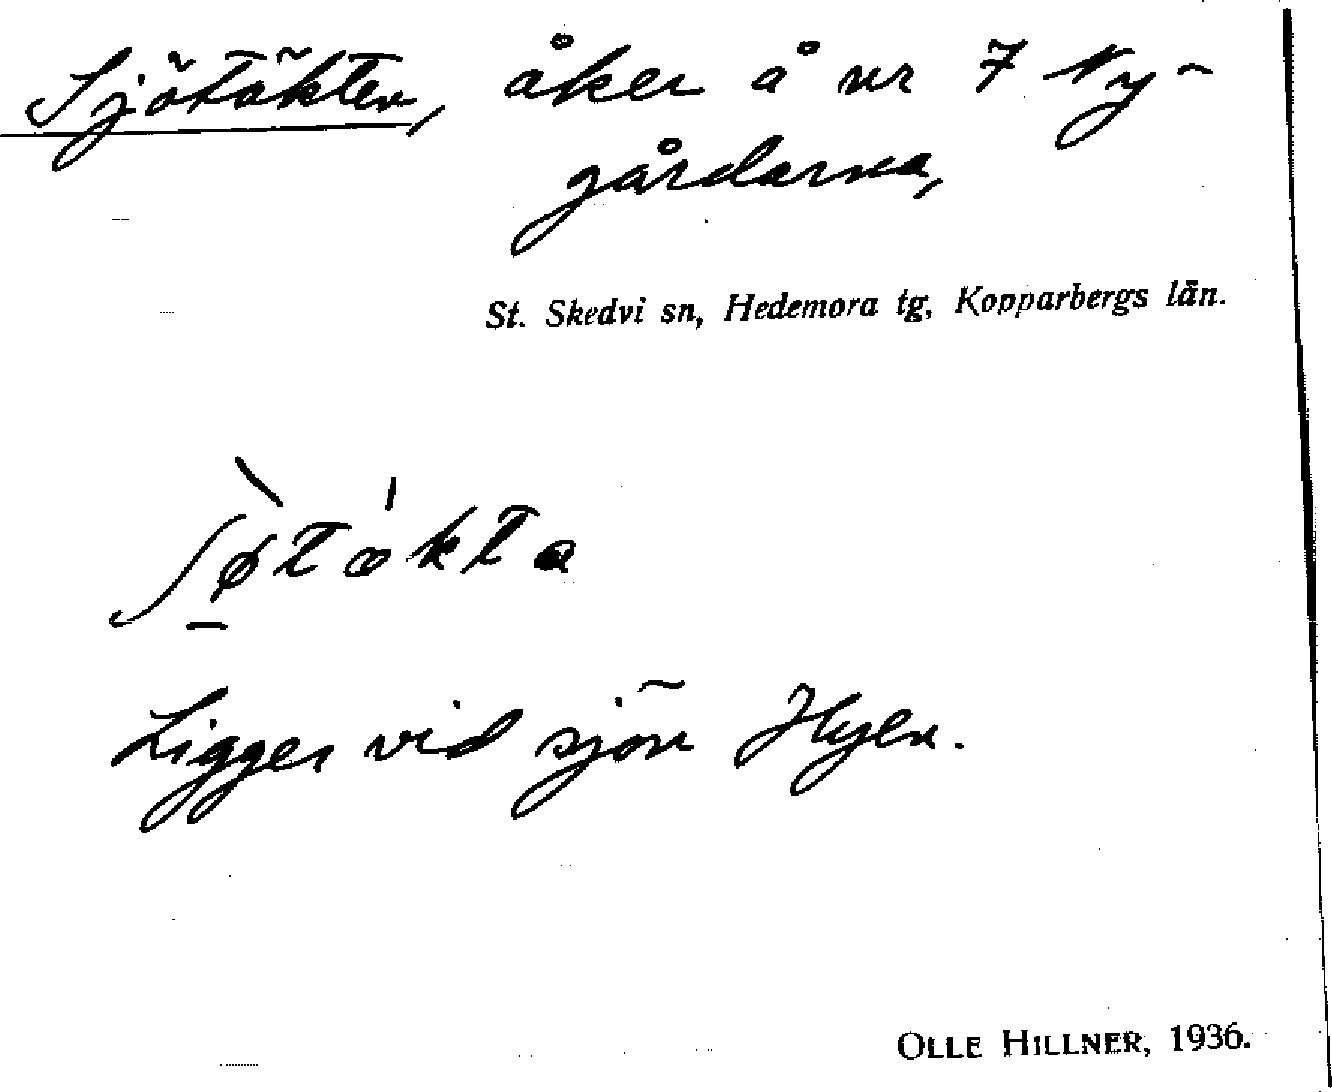 Sjötäkten, åker å nr 7 Ny-
gårdarna,
St. Skedvi sn, Hedemora tg, Kopparbergs län.
ʃø̀tæ̍kta
Ligger vid sjön Hyen.
OLLE HILLNER, 1936.